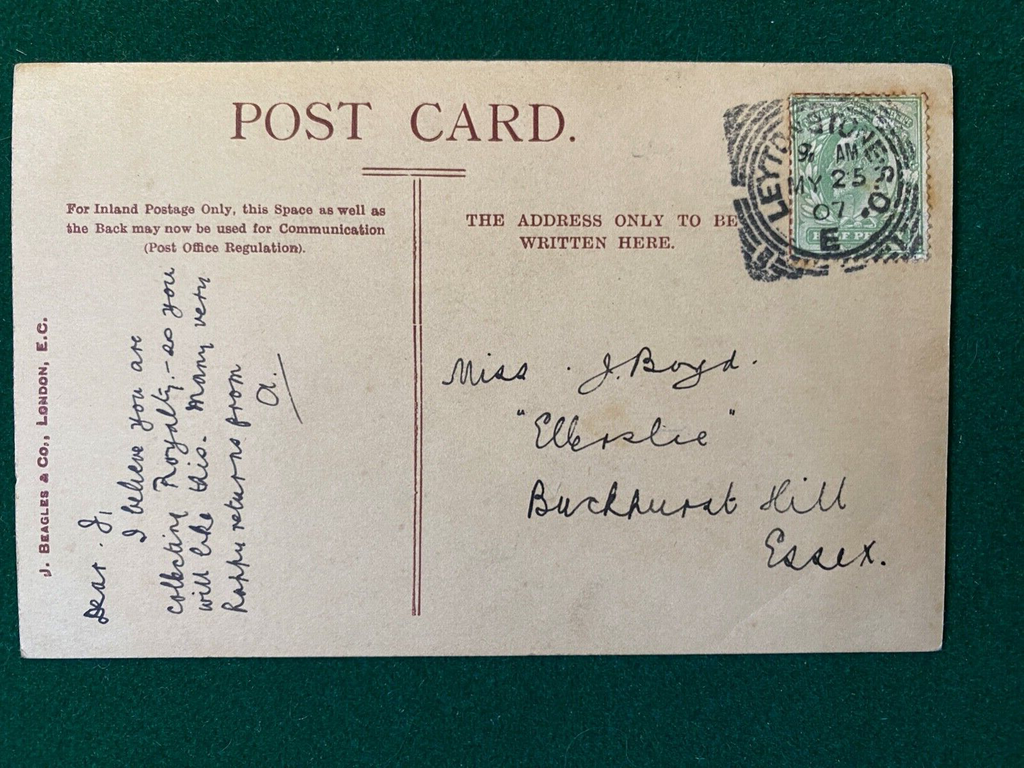 POST CARD.
For Inland Postage Only, this Space as well as
the Back may now be used for Communication
(Post Office Regulation).
THE ADDRESS ONLY TO BE
WRITTEN HERE.
J. BEAGLES & CO., LONDON, E.C.
Dear J,
I believe you are
collecting Royalty, - so you
will like this. Many very
happy returns from
A.
Miss J. Boyd.
"Ellerslie"
Buckhurst Hill
Essex.
LEYTONSTONE S.O.
AM
MY 25
07
E